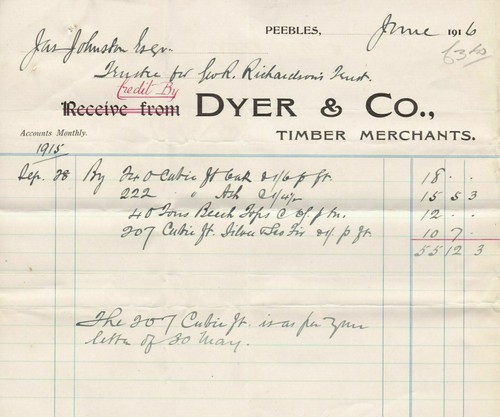 PEEBLES, June 1916
£3.10
Jas Johnston Esqr.
Trustee for Geo R. Richardson's Trust.
Credit By
Receive from DYER & Co.,
Accounts Monthly. TIMBER MERCHANTS.
1915
Sep. 28 By Cubic ft Oak @ 1/6 p ft. 18 . .
222 " " Ash @ 15 5 3
40 Tons Beech Tops @ 6/. p tn. 12 . .
207 Cubic ft. Silver & Sco Fir @ 1/. p ft. 10 7 .
55 12 3
The 207 Cubic ft. is as per your
letter of 30 May.